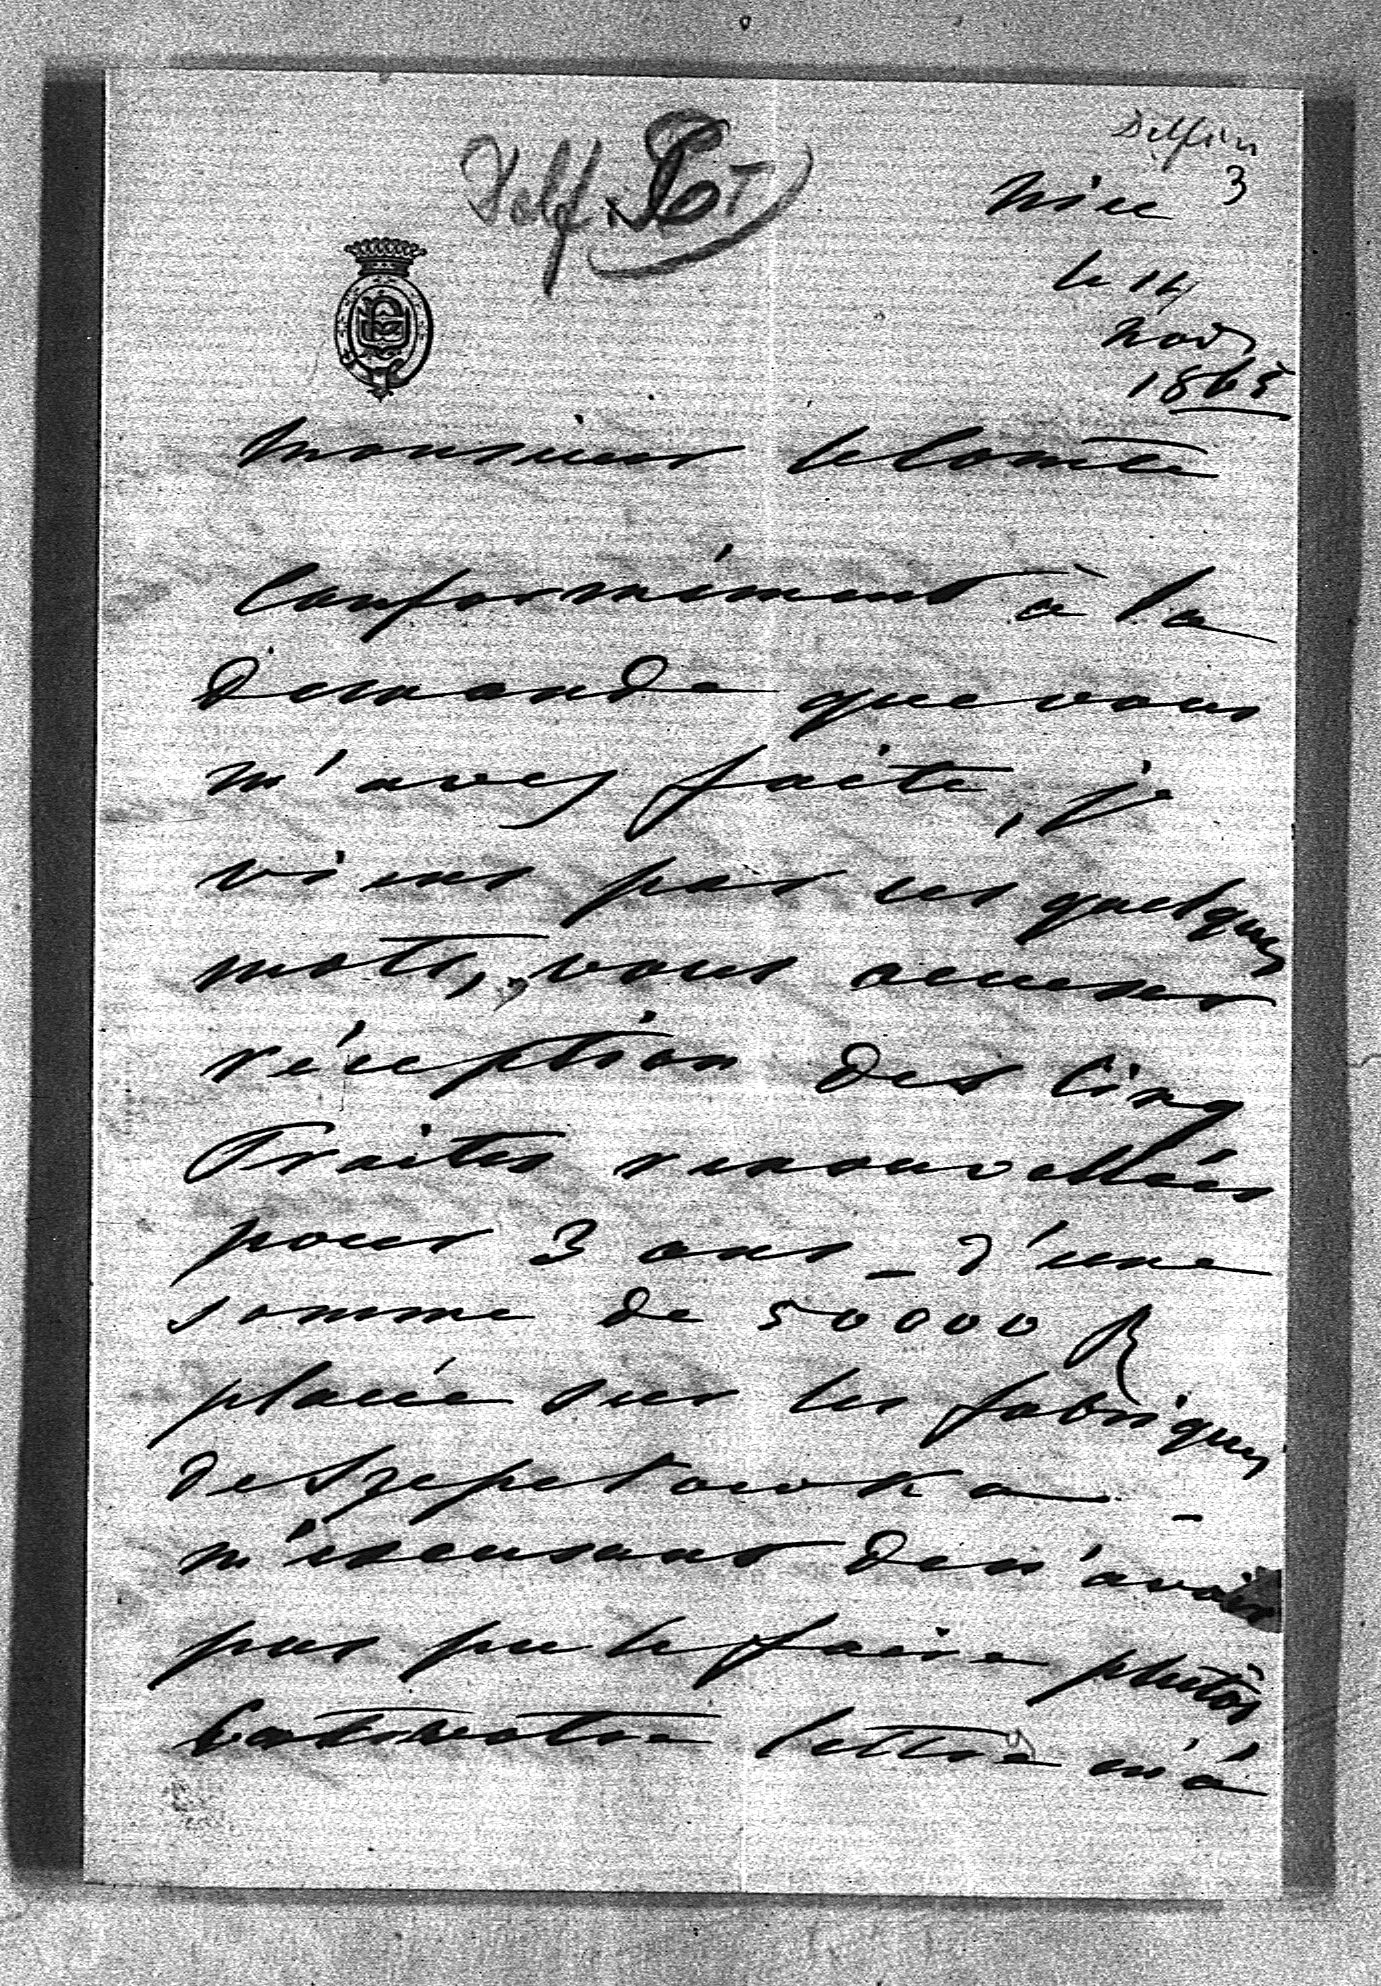 Delfin
3
Nice
le 14
Nov
1865
Monsieur le Comte
Conformément à la
demande que vous
m'avez faite, je
viens par ces quelques
mots, vous accuser
réception des Cinq
Traites renouvellées
pour 3 ans _ d'une
somme de 50000 R
placée sur les fabriques
de Szepetowka _
m'excusant de n'avoir
pas pu le faire plutôt
Car votre lettre m'a